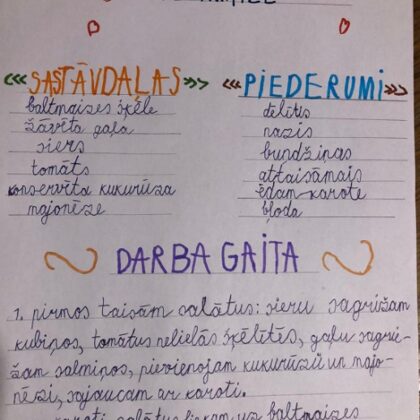 SASTĀVDAĻAS
baltmaizes šķēle
žāvēta gaļa
siers
tomāts
konservēta kukurūza
majonēze
PIEDERUMI
dēlītis
nazis
bundžiņas
attaisāmais
ēdamkarote
bļoda
DARBA GAITA
1. pirmos taisām salātus: sieru sagrižam
kubiņos, tomātus nelielās šķēlītēs, gaļu sagrie-
žam salmiņos, pievienojam kukurūzu un majo-
nēzi, sajaucam ar karoti.
karoti salātus liekam uz baltmaizes